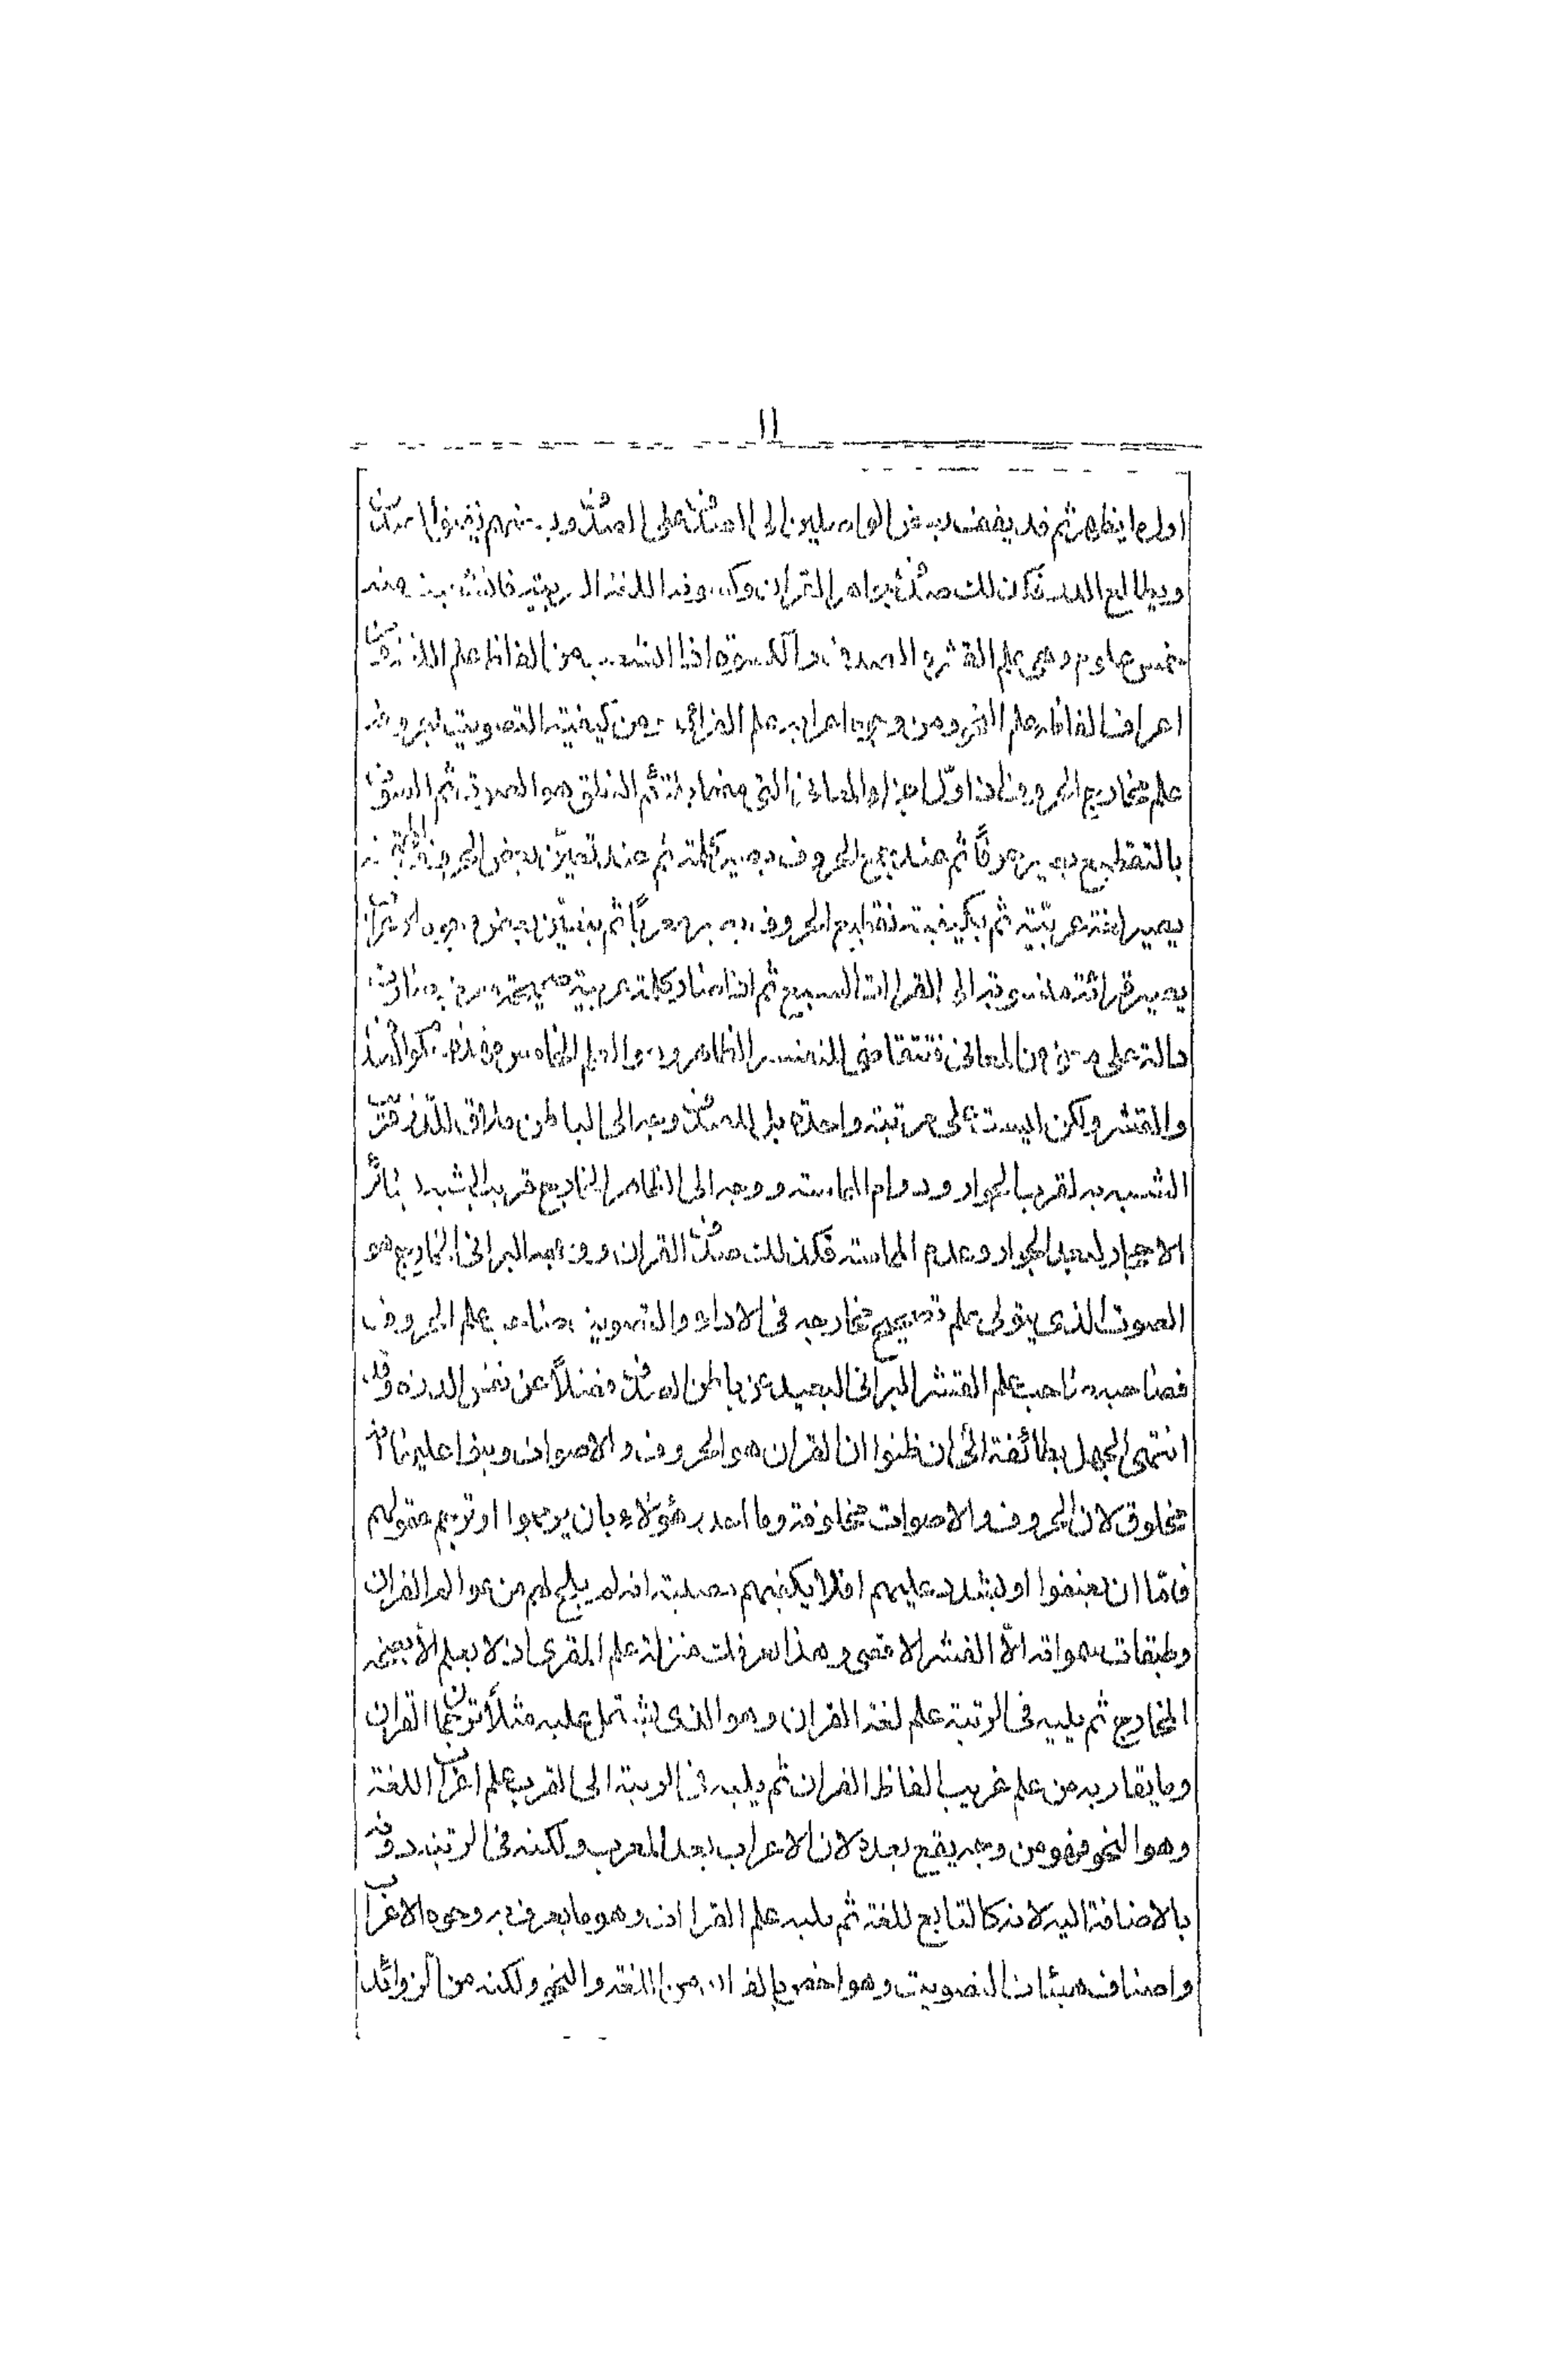 ١١
اول ما يظهر ثم قد يقف بعض الواصلين الى الصدف على الصدف وبعضهم يفتق الصدف
ويطالع الدر فكذلك صدف جواهر القران وكسوته اللغة العربية فانشعبت منه
خمس علوم وهى علم القشر والصدف والكسوة اذا انشعب من الفاظه علم اللغة ومن
اعراب الفاظه علم النحو ومن وجوه اعرابه علم القراات ومن كيفية التصويت بحروفه
علم مخارج الحروف اذ اول اجزاء المعانى التى منها يلتئم النطق هو الصوت ثم الصوت
بالتقطيع يصير حرفاً ثم عند جمع الحروف يصير كلمة ثم عند تعين بعض الحروف المجتمعة
يصير لغة عربية ثم بكيفية تقطيع الحروف يصير معرباً ثم بتعين بعض وجوه الاعراب
يصير قرائة منسوبة الى القراات السبع ثم اذا صار كلمة عربية صحيحة معربة صارت
دالة على معنى من المعانى فتتقاضى للتفسير الظاهر وهو العلم الخامس فهذه علوم الصدف
والقشر ولكن ليست على مرتبة واحدة بل للصدف وجه الى الباطن ملاق للدر قريب
الشبه به لقرب الجوار ودوام المماسة ووجه الى الظاهر الخارج قريب الشبه بسائر
الاحجار لبعد الجوار وعدم المماسة فكذلك صدف القران ووجهه البرانى الخارج هو
الصوت الذى يتولى علم تصحيح مخارجه فى الاداء والتصويت صاحب علم الحروف
فصاحبه صاحب علم القشر البرانى البعيد عن باطن الصدف فضلاً عن نفس الدرة وقد
انتهى الجهل بطائفة الى ان ظنوا ان القران هو الحروف والاصوات وبنوا عليها انه
مخلوق لان الحروف والاصوات مخلوقة وما اجدر هؤلاء بان يرجموا او ترجم عقولهم
فامّا ان يعنفوا او يشدد عليهم افلا يكفيهم مصيبة انه لم يلح لهم من عوالم القران
وطبقات سمواته الاّ القشر الاقصى وهذا يعرفك منزلة علم المقرى اذ لا يعلم الا بصحة
المخارج ثم يليه فى الرتبة علم لغة القران وهو الذى يشتمل عليه مثلاً ترجمان القران
وما يقاربه من علم غريب الفاظ القران ثم يليه فى الرتبة الى القرب علم اعراب اللغة
وهو النحو فهو من وجه يقع بعده لان الاعراب بعد المعرب ولكنه فى الرتبة دونه
بالاضافة اليه لانه كالتابع للغة ثم يليه علم القراات وهو ما يعرف به وجوه الاعراب
واصناف هيئات التصويت وهو اخص بالقران من اللغة والنحو ولكنه من الزوائد